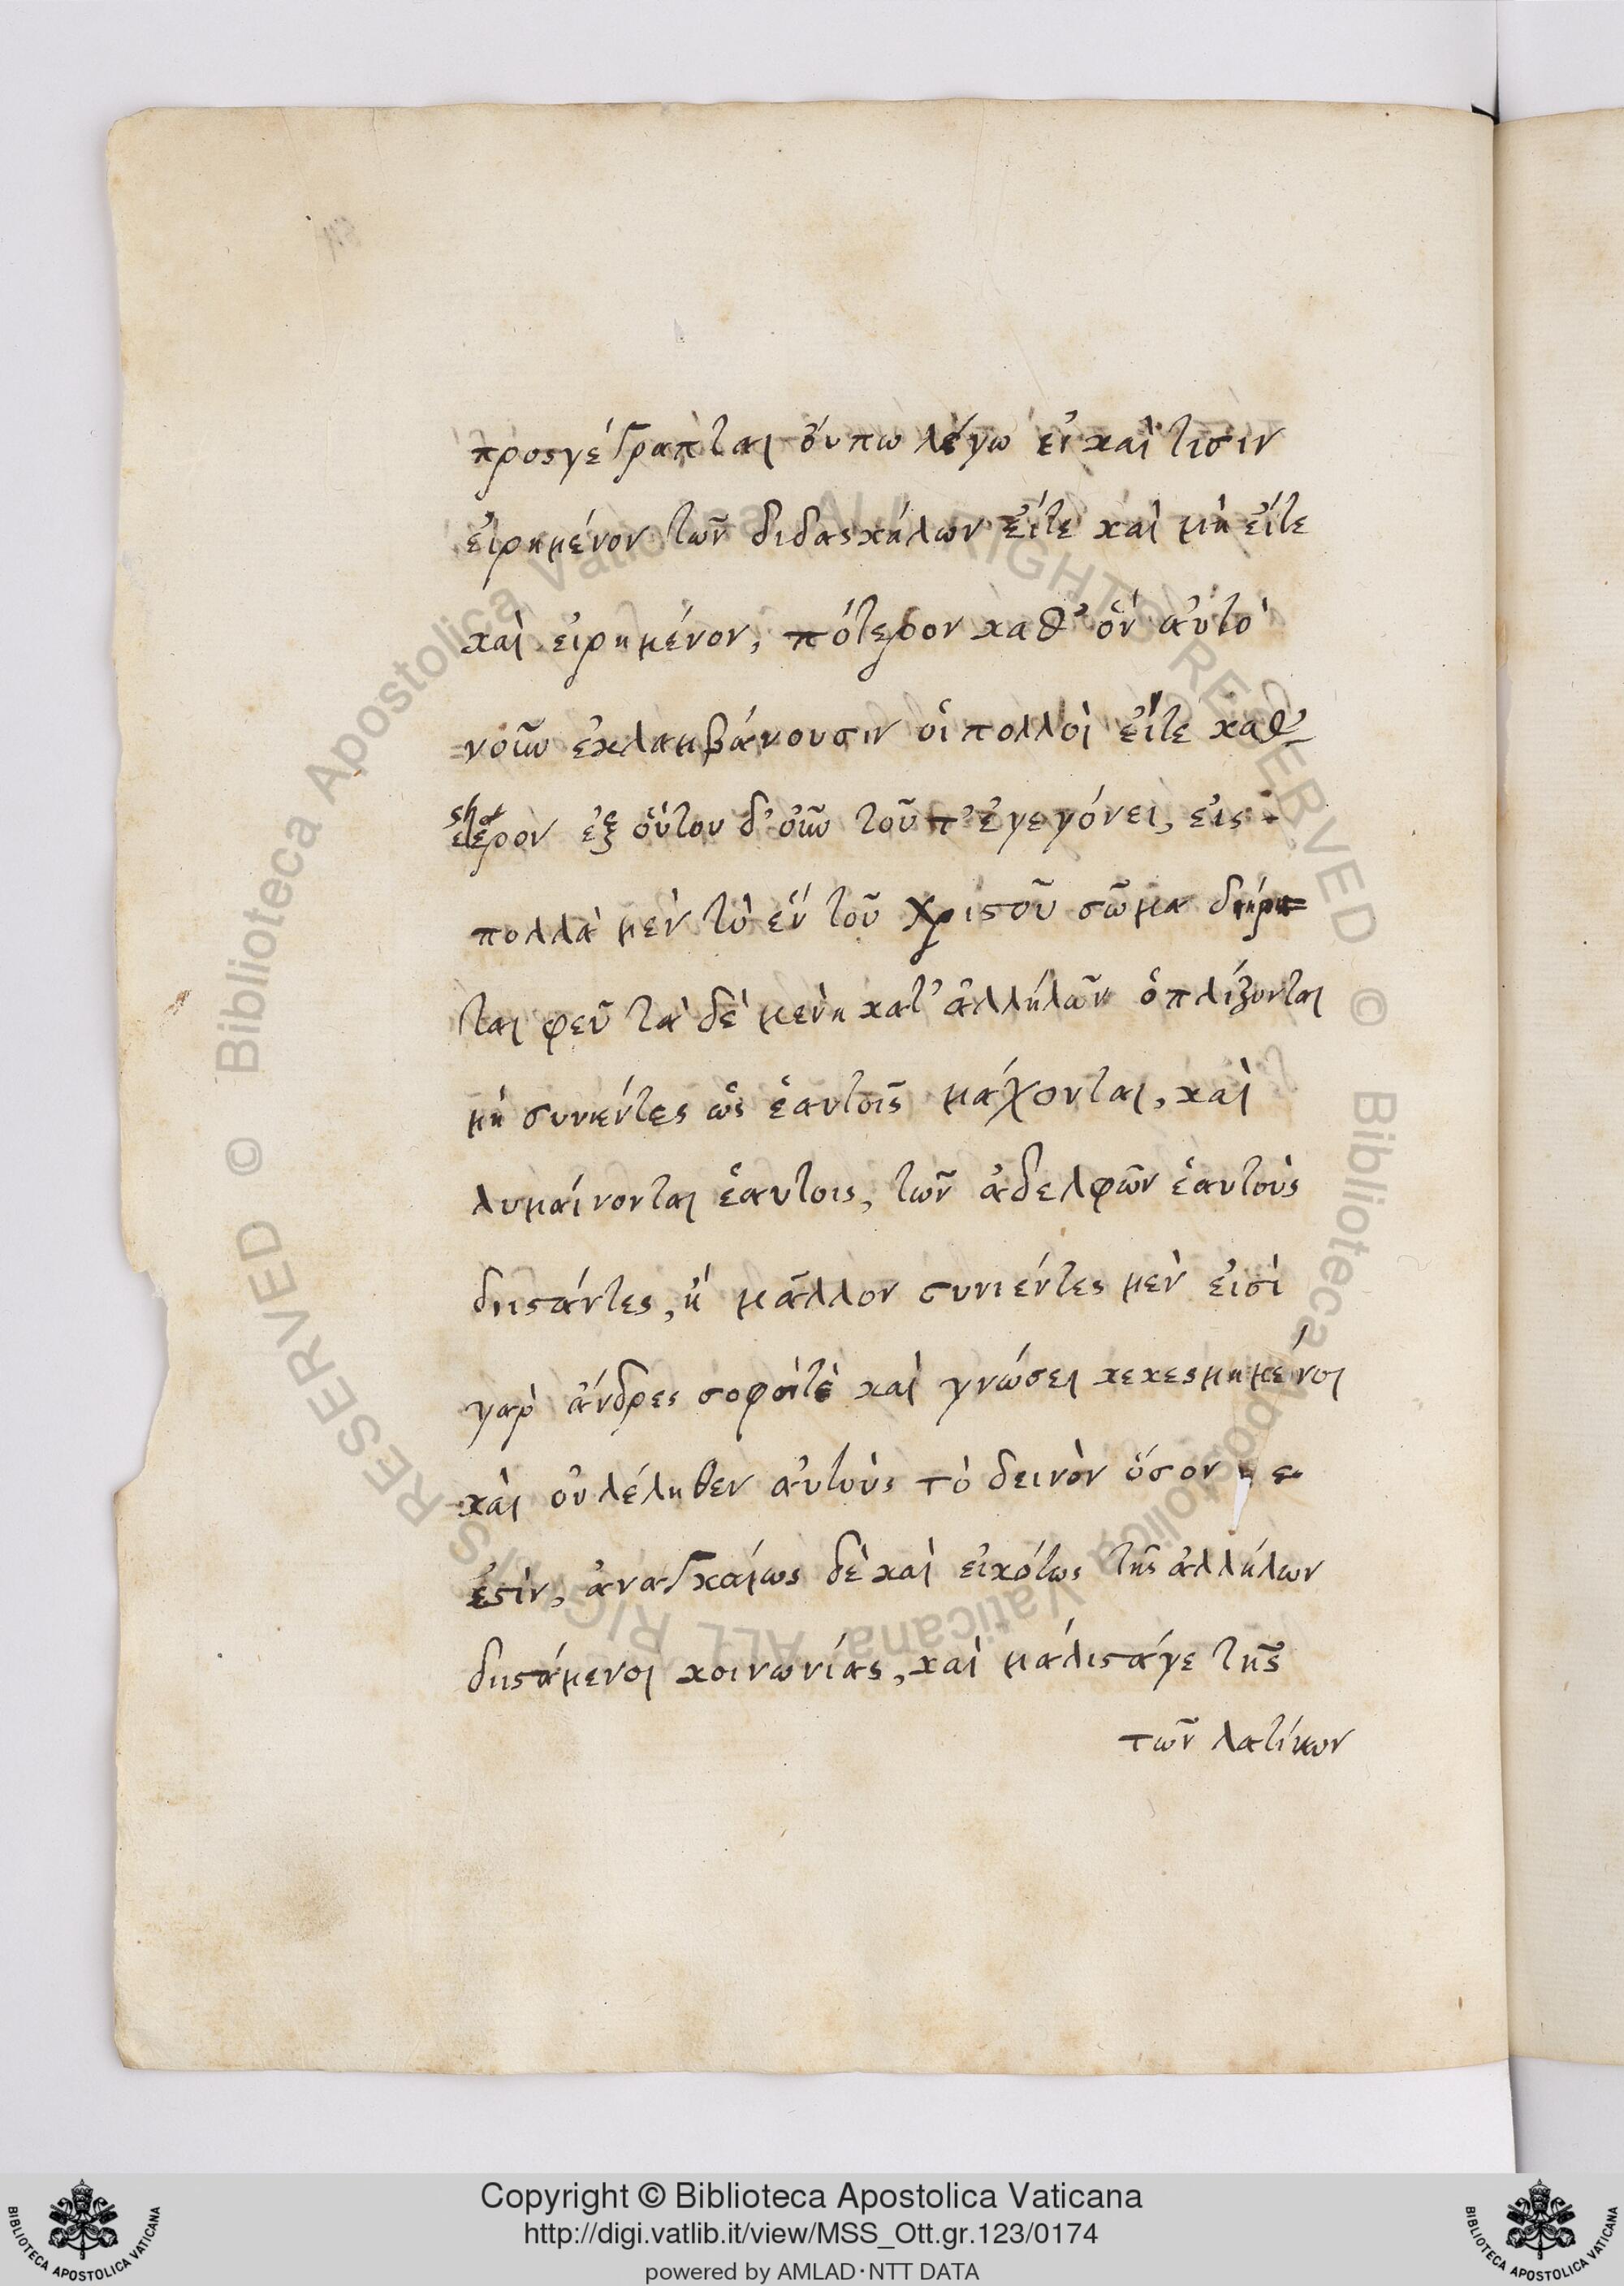 προσγέγραπται οὔπω λέγω εἰ καὶ τισὶν
εἰρημένον τῶν διδασκάλων εἴτε καὶ μὴ εἴτε
καὶ εἰρημένον, πότερον καθ' ὃν αὐτὸ
νοῦν ἐκλαμβάνουσιν οἱ πολλοὶ εἴτε καθ'
ἕτερον ἐξ οὕτου δ' οὖν τοῦτ' ἐγεγόνει, εἰς
πολλὰ μὲν τὸ ἓν τοῦ Χριστοῦ σῶμα διήρη
ται φεῦ τὰ δὲ μένη κατ' ἀλλήλων ὁπλίζονται
μὴ συνιέντες ὡς ἑαυτοῖς μάχονται, καὶ
λυμαίνονται ἑαυτοις, τῶν ἀδελφῶν ἑαυτοὺς
διιστάντες, ἢ μᾶλλον συνιέντες μὲν εἰσὶ
γὰρ ἄνδρες σοφοίτὲ καὶ γνώσει κεκεσμημένοι
καὶ οὐ λέληθεν αὐτοὺς τὸ δεινὸν ὅσον
ἐστὶν, ἀναγκαίως δὲ καὶ εἰκότως τῆς ἀλλήλων
διιστάμενοι κοινωνίας, καὶ μάλιστάγε τῆς
τῶν λατίνων
Copyright © Biblioteca Apostolica Vaticana
http://digi.vatlib.it/view/MSS_Ott.gr.123/0174
powered by AMLAD·NTT DATA
BIBLIOTECA APOSTOLICA VATICANA
BIBLIOTECA APOSTOLICA VATICANA
© Biblioteca Apostolica Vaticana ALL RIGHTS RESERVED
© Biblioteca Apostolica Vaticana ALL RIGHTS RESERVED